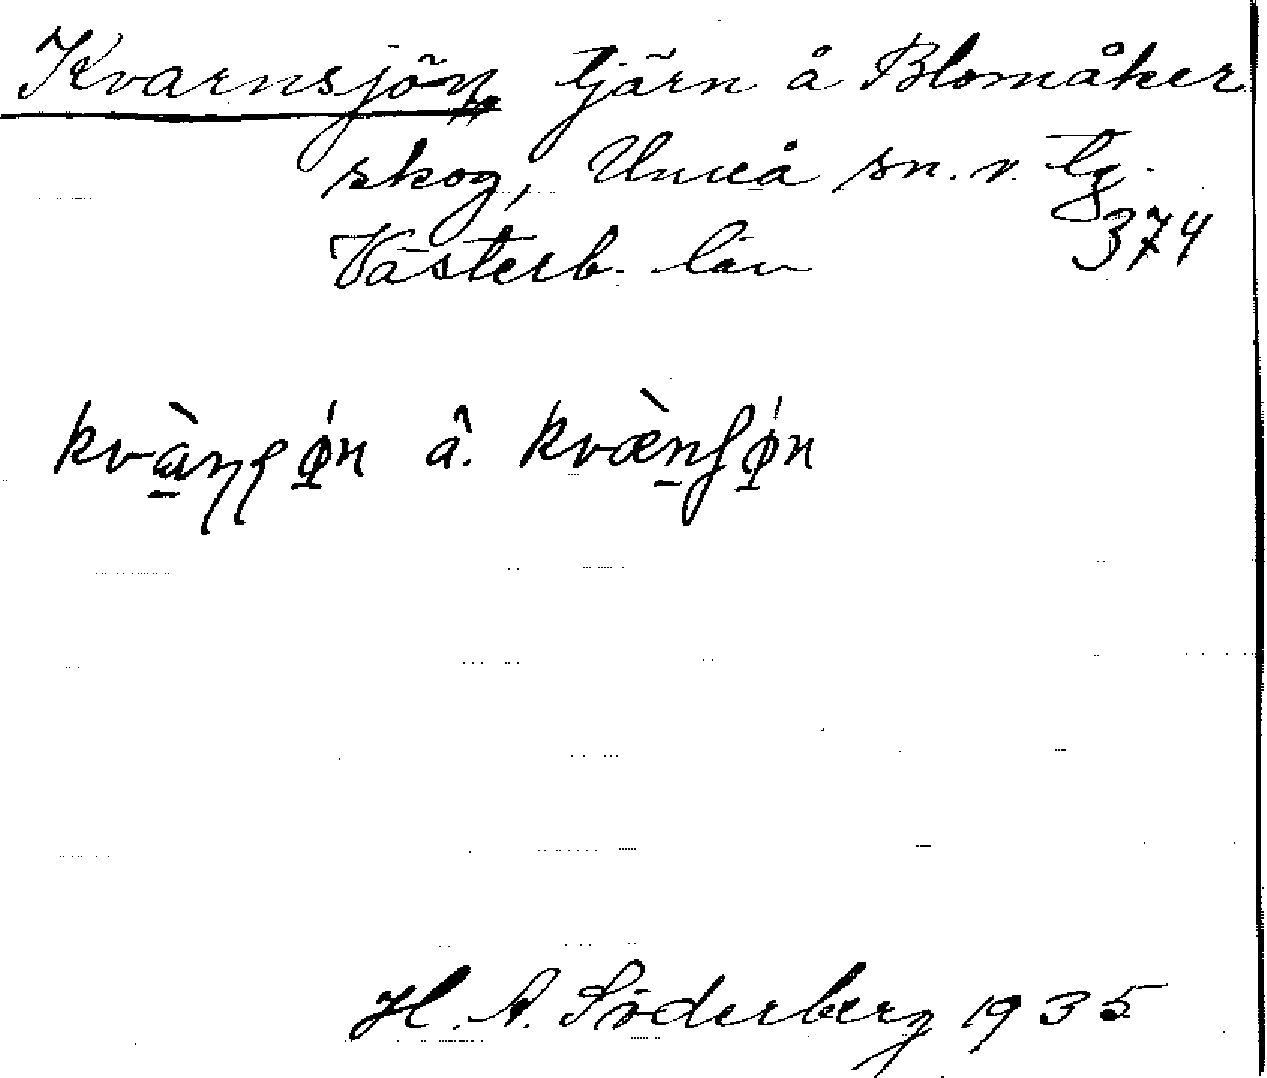 Kvarnsjön tjärn å Blomåker
skog, Umeå sn. v. tg.
Västerb. län 374
kvàn̠ʂǿn å. kvæ̀nʃǿn
H. A. Söderberg 1935